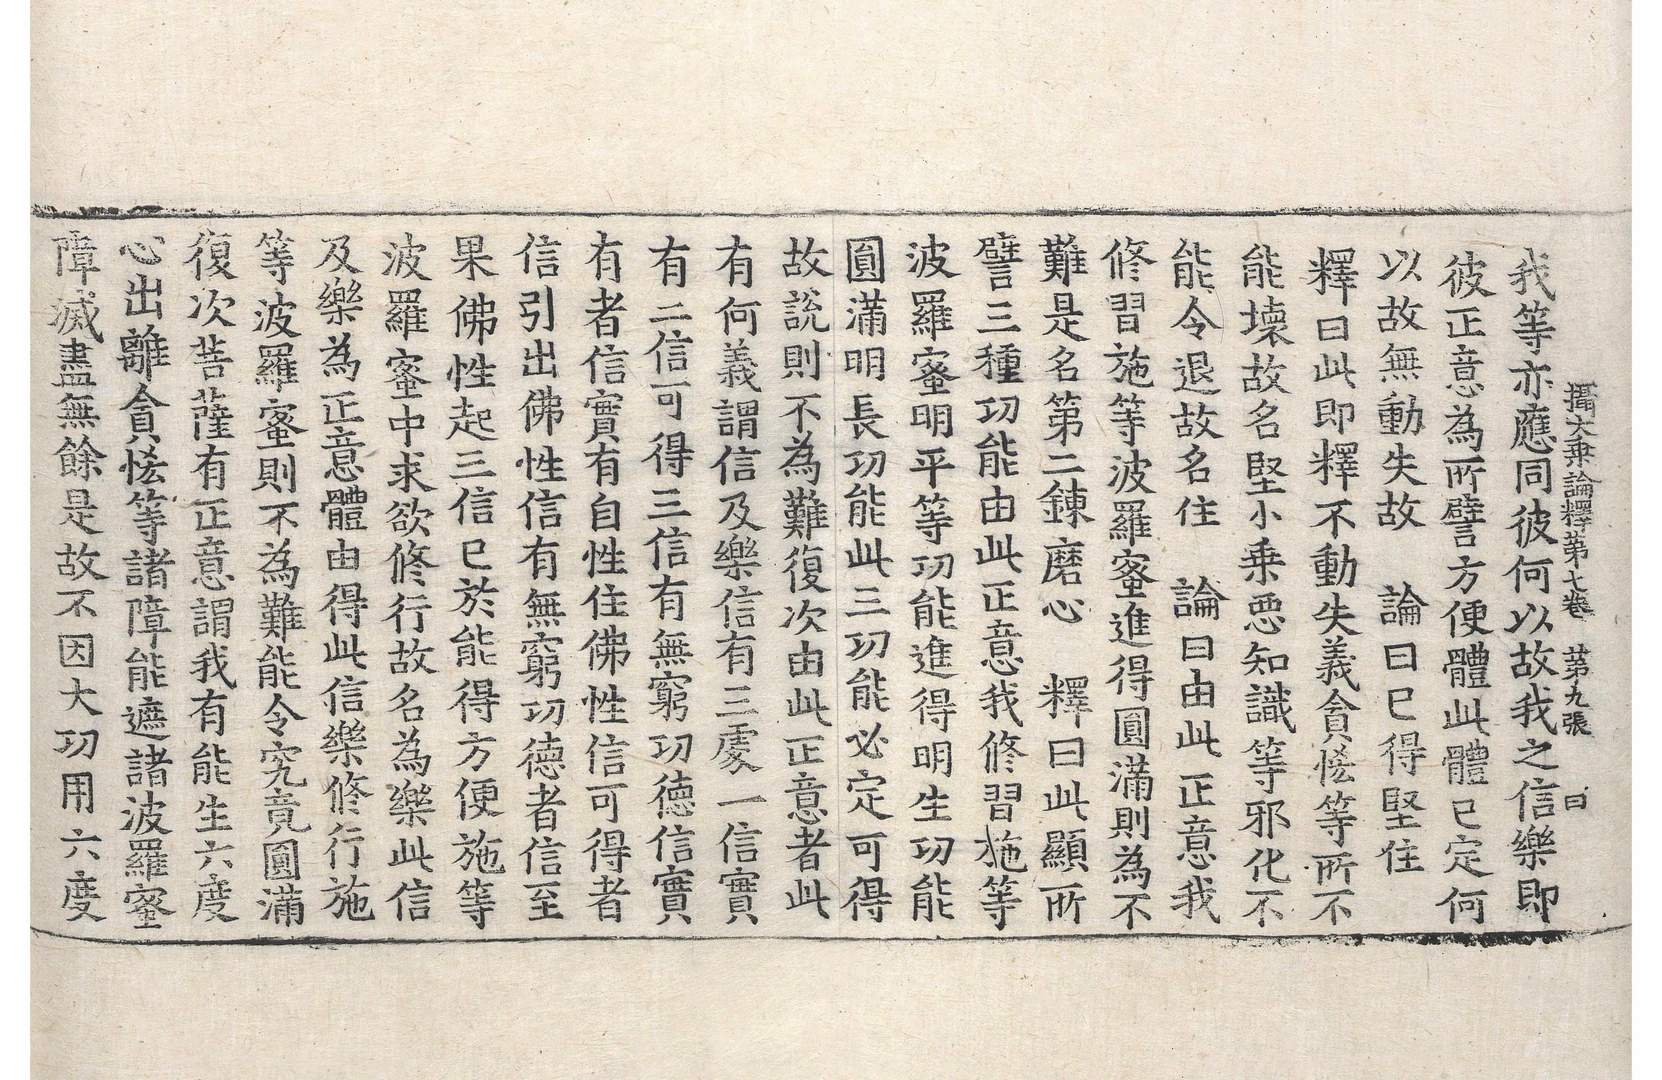 攝大乗論釋第七卷 第九張 曰
我等亦應同彼何以故我之信樂即
彼正意為所譬方便體此體已定何
以故無動失故 論曰已得堅住
釋曰此即釋不動失義貪悋等所不
能壞故名堅小乗惡知識等邪化不
能令退故名住 論曰由此正意我
修習施等波羅蜜進得圓滿則為不
難是名第二鍊磨心 釋曰此顯所
譬三種功能由此正意我修習施等
波羅蜜明平等功能進得明生功能
圓滿明長功能此三功能必定可得
故說則不為難復次由此正意者此
有何義謂信及樂信有三處一信實
有二信可得三信有無窮功德信實
有者信實有自性住佛性信可得者
信引出佛性信有無窮功德者信至
果佛性起三信已於能得方便施等
波羅蜜中求欲修行故名為樂此信
及樂為正意體由得此信樂修行施
等波羅蜜則不為難能令究竟圓滿
復次菩薩有正意謂我有能生六度
心出離貪悋等諸障能遮諸波羅蜜
障滅盡無餘是故不因大功用六度